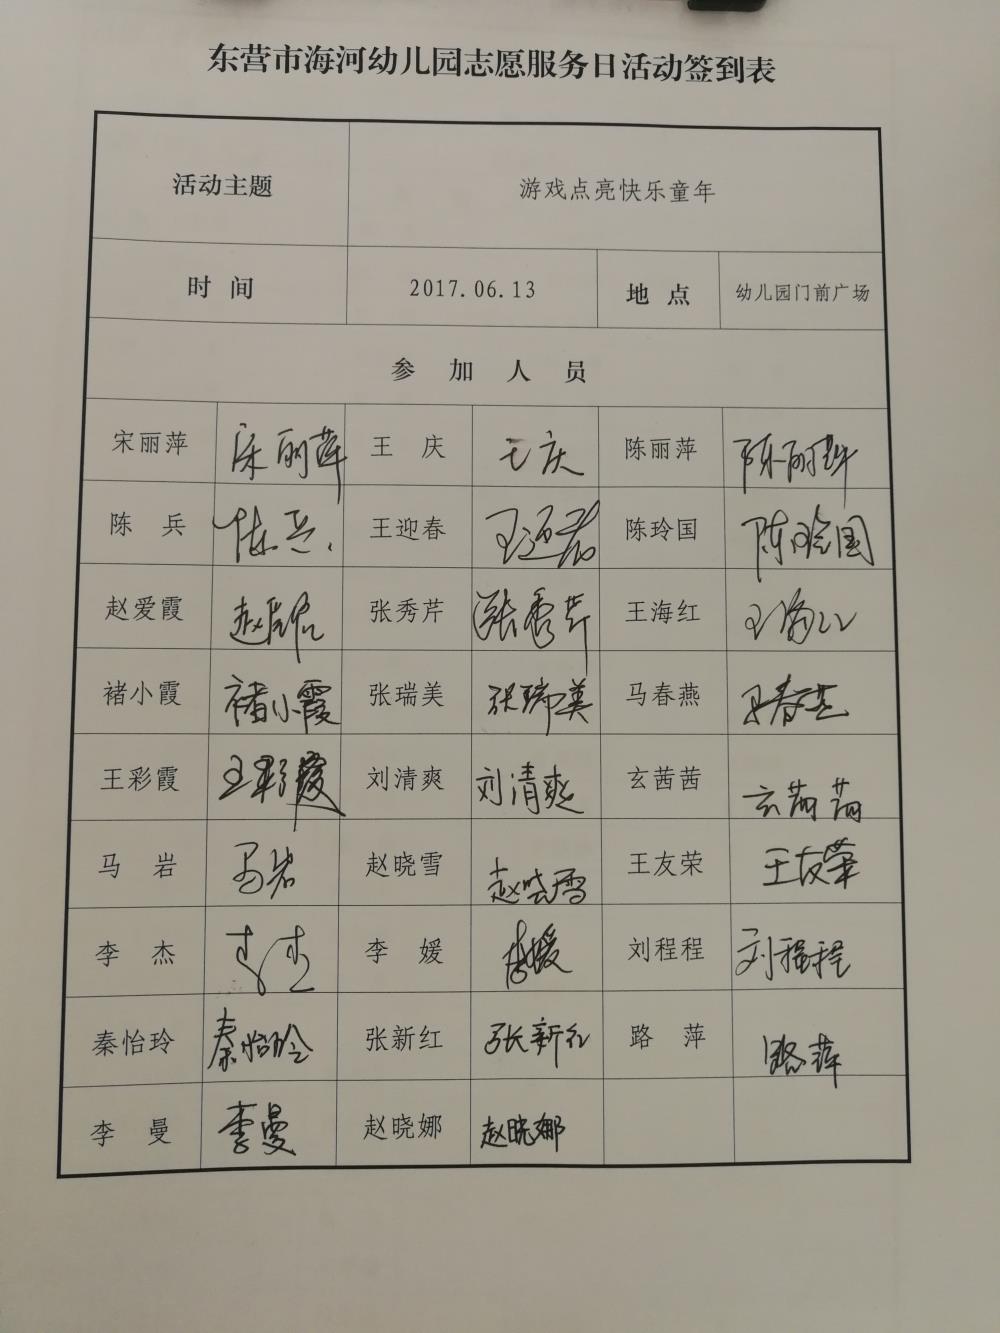 东营市海河幼儿园志愿服务日活动签到表
活动主题 游戏点亮快乐童年
时 间 2017.06.13 地 点 幼儿园门前广场
参 加 人 员
宋丽萍 宋丽萍 王 庆 王庆 陈丽萍 陈丽萍
陈 兵 陈兵 王迎春 王迎春 陈玲国 陈玲国
赵爱霞 赵爱霞 张秀芹 张秀芹 王海红 王海红
褚小霞 褚小霞 张瑞美 张瑞美 马春燕 马春燕
王彩霞 王彩霞 刘清爽 刘清爽 玄茜茜 玄茜茜
马 岩 马岩 赵晓雪 赵晓雪 王友荣 王友荣
李 杰 李杰 李 媛 李媛 刘程程 刘程程
秦怡玲 秦怡玲 张新红 张新红 路 萍 路萍
李 曼 李曼 赵晓娜 赵晓娜